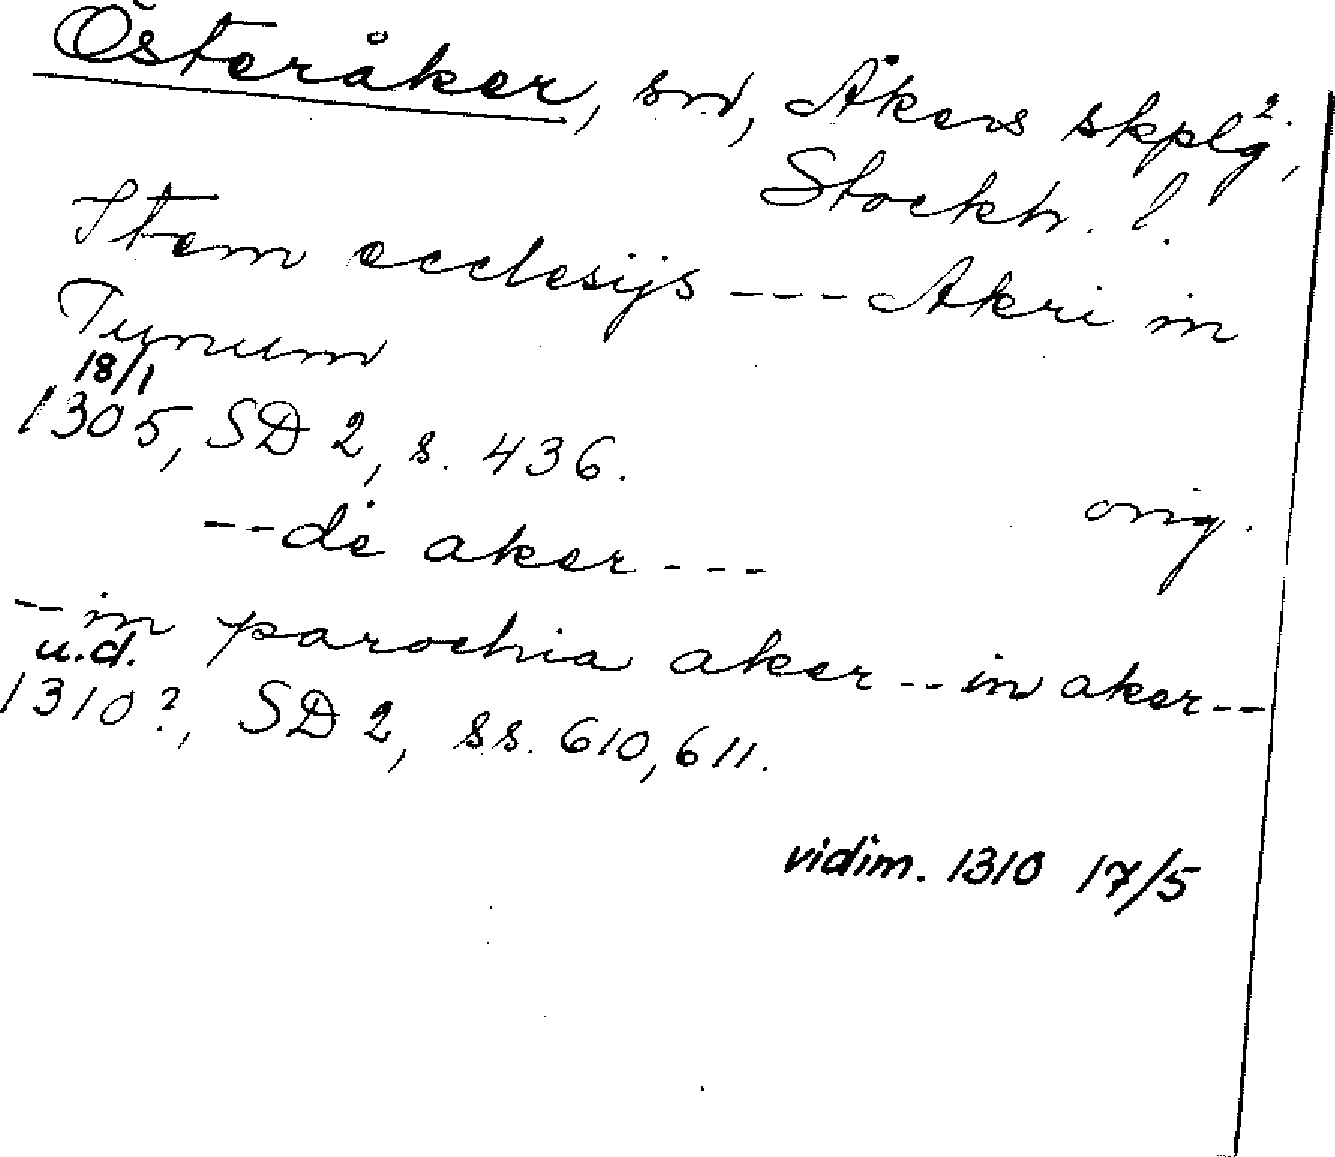 Österåker, sn, Åkers skplg,
Stockh. l.
Item ecclesijs --- Akri in
Tunum
18/1
1305, SD 2, s. 436.
orig.
-- de aker ---
-- in parochia aker -- in aker --
u.d.
1310?, SD 2, ss. 610, 611.
vidim. 1310 17/5